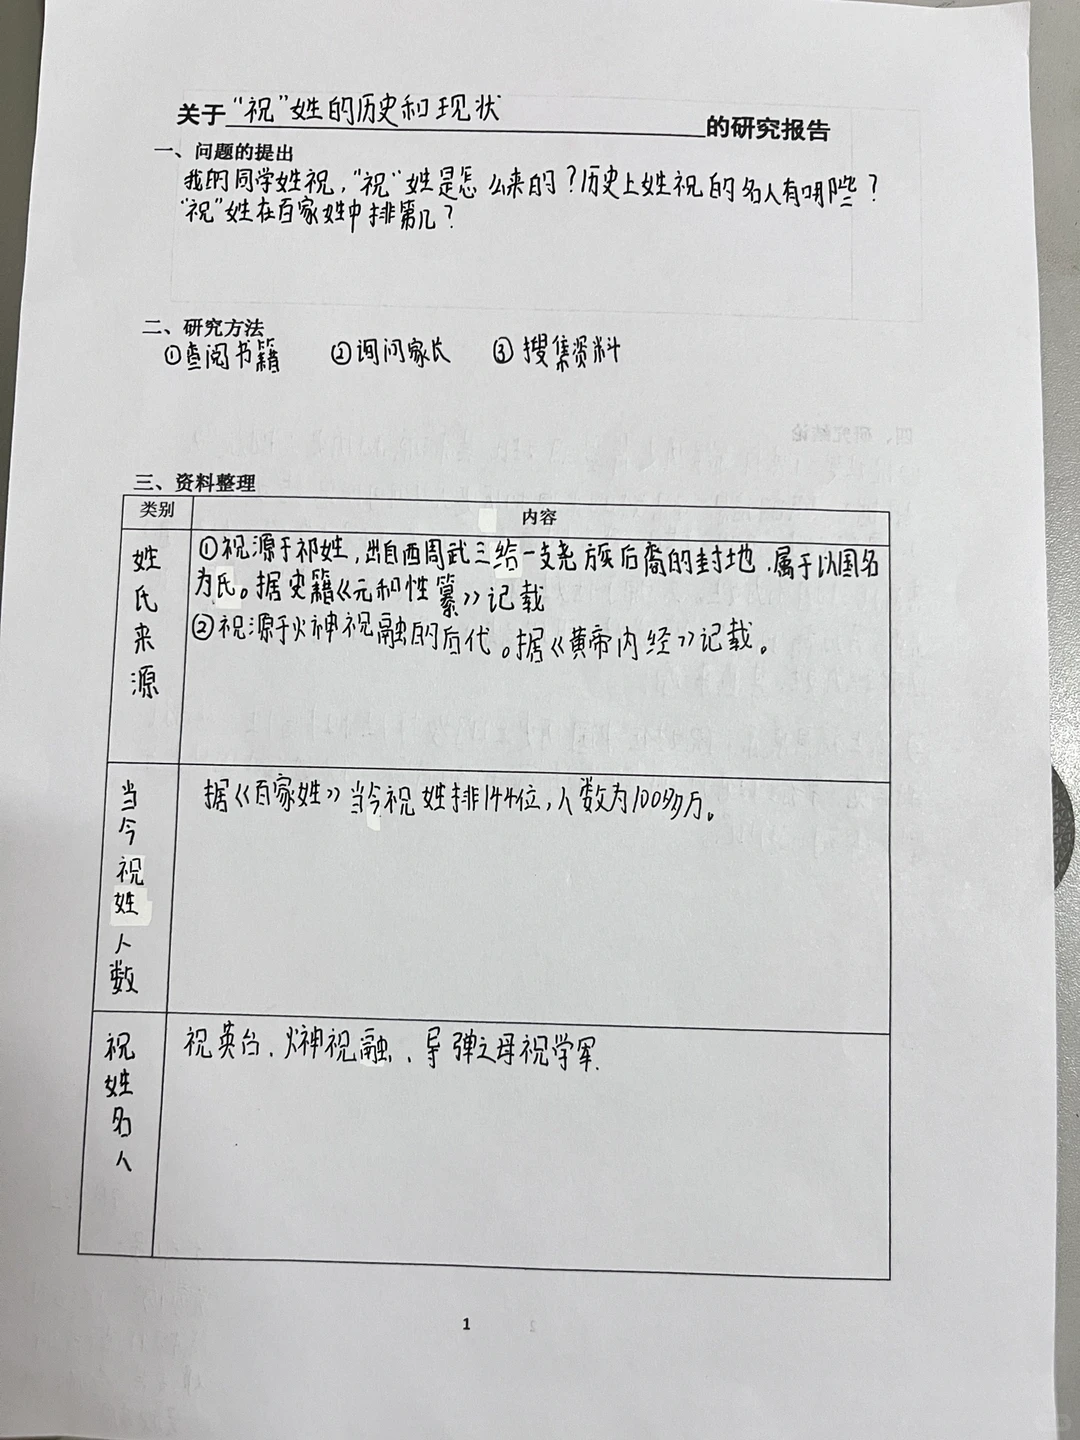 关于“祝”姓的历史和现状的研究报告
一、问题的提出
我的同学姓祝，“祝”姓是怎么来的？历史上姓祝的名人有哪些？
“祝”姓在百家姓中排第几？
二、研究方法
①查阅书籍 ②询问家长 ③搜集资料
三、资料整理
类别 内容
姓氏来源
①祝源于祁姓，出自西周武三给一支尧族后裔的封地，属于以国名
为氏。据史籍《元和性纂》记载
②祝源于火神祝融的后代。据《黄帝内经》记载。
当今祝姓人数
据《百家姓》当今祝姓排144位，人数为100多万。
祝姓名人
祝英台、火神祝融、导弹之母祝学军.
1